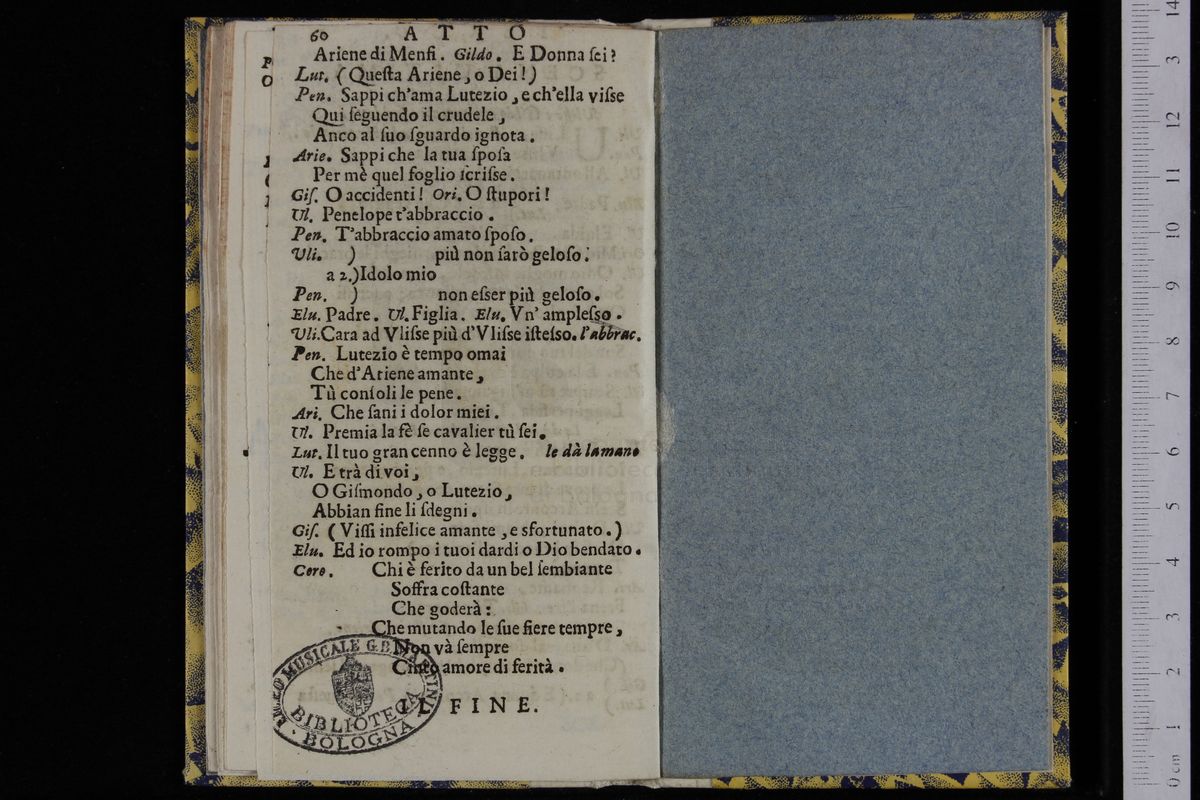 60 ATTO
Ariene di Menfi. Gildo. E Donna ſei?
Lut. (Queſta Ariene, o Dei!)
Pen. Sappi ch'ama Lutezio, e ch'ella viſse
Qui ſeguendo il crudele,
Anco al ſuo ſguardo ignota.
Arie. Sappi che la tua ſpoſa
Per mè quel foglio ſcriſse.
Giſ. O accidenti! Ori. O ſtupori!
Ul. Penelope t'abbraccio.
Pen. T'abbraccio amato ſpoſo.
Uli. ) più non ſarò geloſo.
a 2.) Idolo mio
Pen. ) non eſser più geloſo.
Elu. Padre. Ul. Figlia. Elu. Vn' ampleſso.
Uli. Cara ad Vliſse più d'Vliſse iſteſso. l'abbrac.
Pen. Lutezio è tempo omai
Che d'Ariene amante,
Tù conſoli le pene.
Ari. Che ſani i dolor miei.
Ul. Premia la fè ſe cavalier tù ſei.
Lut. Il tuo gran cenno è legge. le dà la mano
Ul. E trà di voi,
O Giſmondo, o Lutezio,
Abbian fine li ſdegni.
Giſ. (Viſſi infelice amante, e sfortunato.)
Elu. Ed io rompo i tuoi dardi o Dio bendato.
Coro. Chi è ferito da un bel ſembiante
Soffra coſtante
Che goderà:
Che mutando le ſue fiere tempre,
Non và ſempre
Cinto amore di ferità.
IL FINE.
MUSICALE G.B. MARTINI
BIBLIOTECA
BOLOGNA
14
3
12
11
10
9
8
7
6
5
4
3
2
1
0 cm